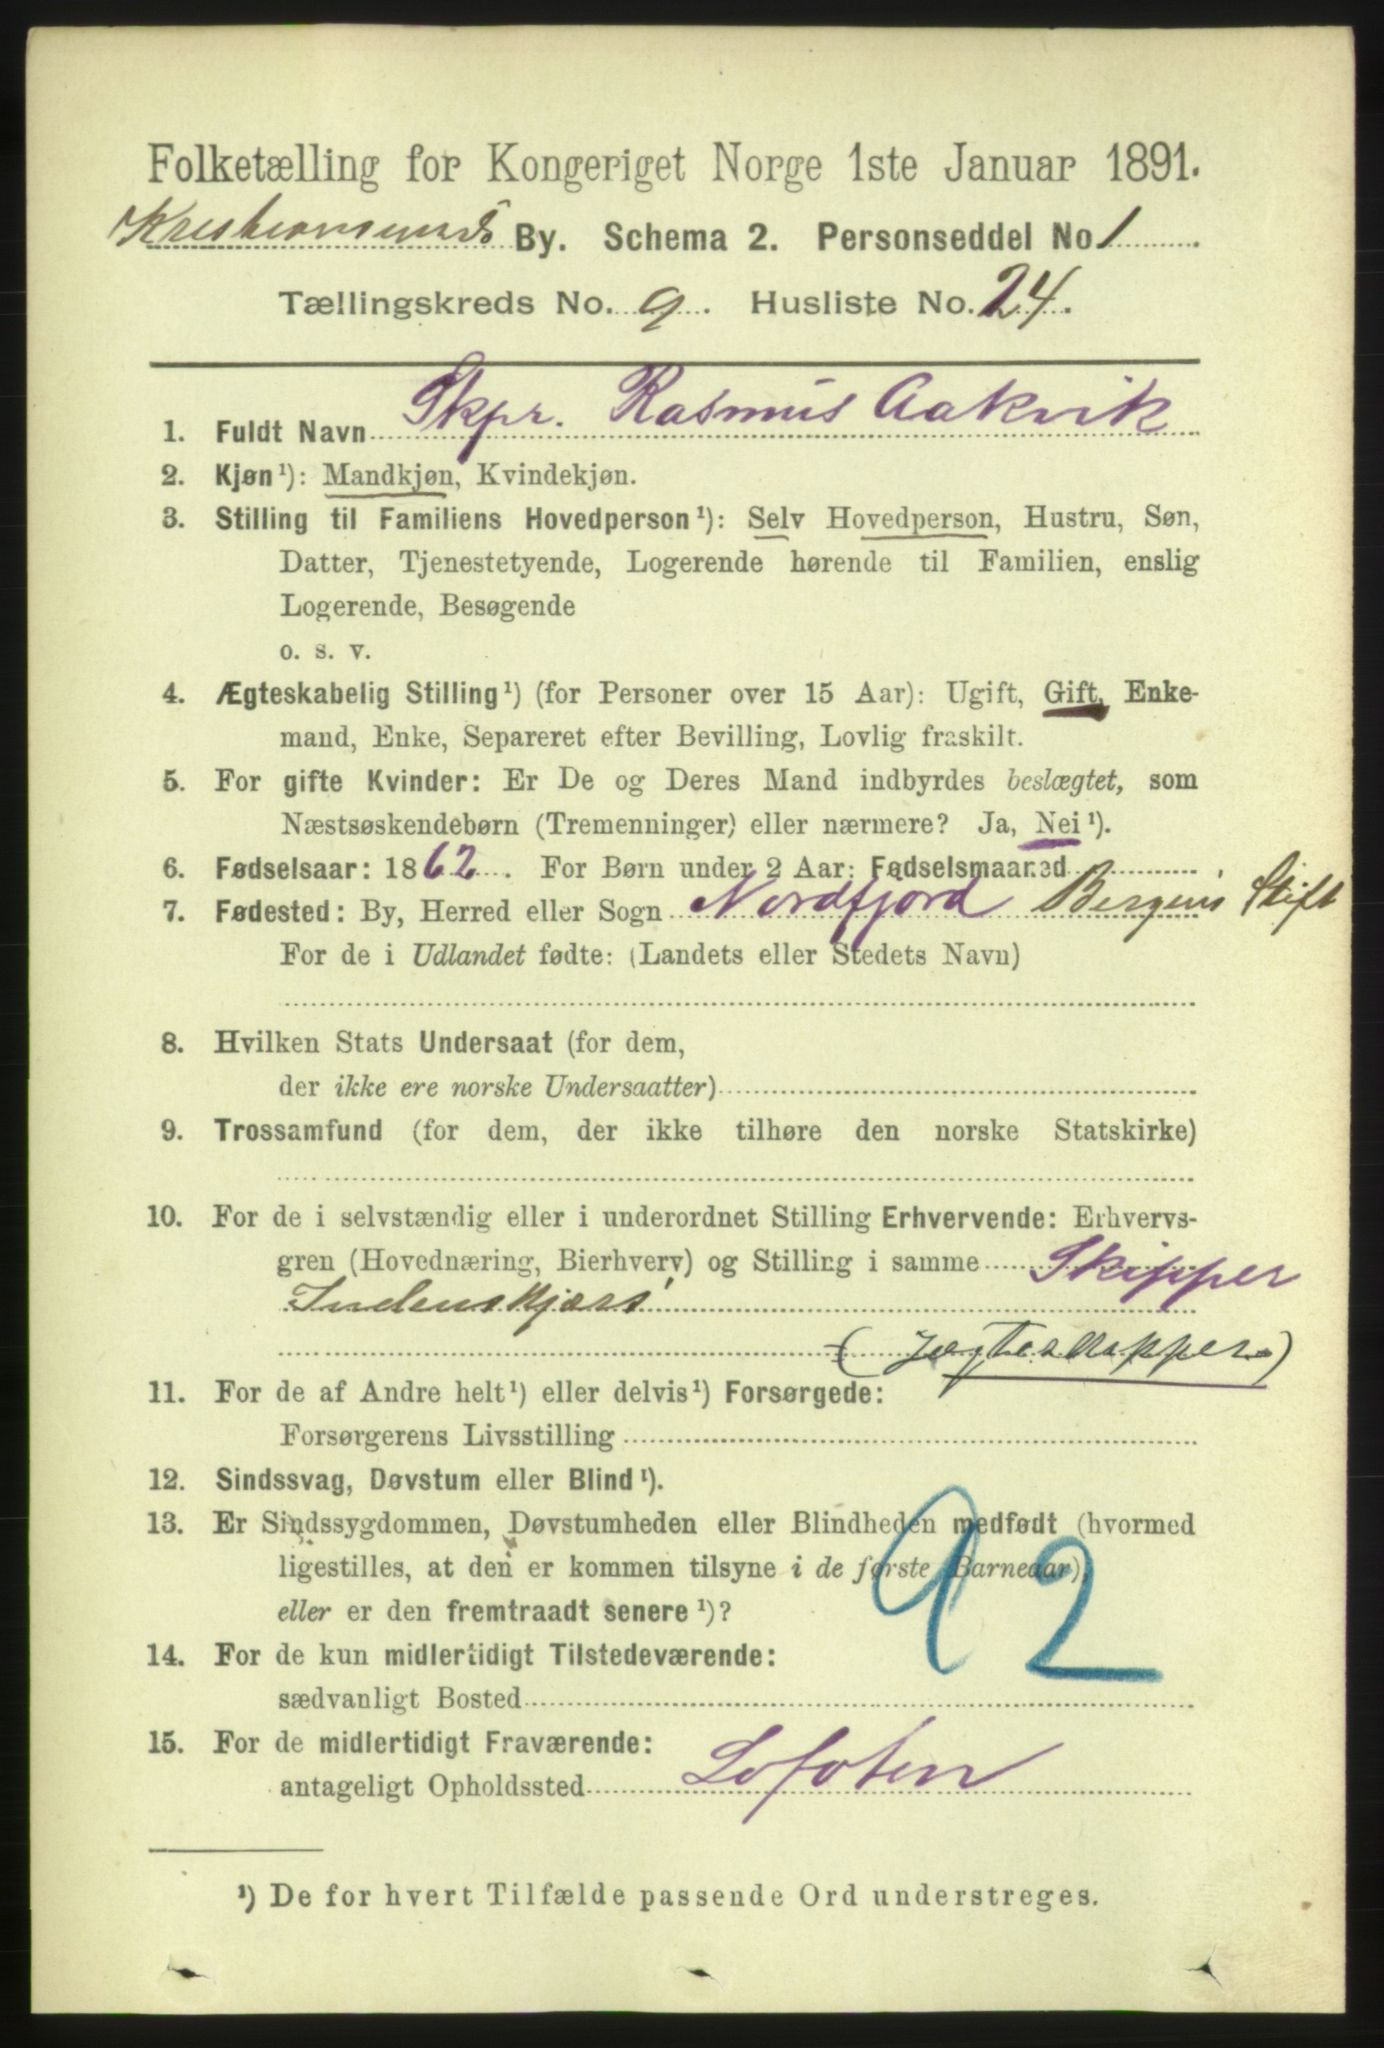 Folketælling for Kongeriget Norge 1ste Januar 1891.
Kristiansunds By. Schema 2. Personseddel No 1
Tællingskreds No. 9. Husliste No. 24.
1. Fuldt Navn Skpr. Rasmus Aakvik
2. Kjøn¹): Mandkjøn, Kvindekjøn.
3. Stilling til Familiens Hovedperson¹): Selv Hovedperson, Hustru, Søn,
Datter, Tjenestetyende, Logerende hørende til Familien, enslig
Logerende, Besøgende
o. s. v.
4. Ægteskabelig Stilling¹) (for Personer over 15 Aar): Ugift, Gift, Enke-
mand, Enke, Separeret efter Bevilling, Lovlig fraskilt.
5. For gifte Kvinder: Er De og Deres Mand indbyrdes beslægtet, som
Næstsøskendebørn (Tremenninger) eller nærmere? Ja, Nei¹).
6. Fødselsaar: 1862. For Børn under 2 Aar: Fødselsmaaned
7. Fødested: By, Herred eller Sogn Nordfjord Bergens Stift
For de i Udlandet fødte: (Landets eller Stedets Navn)
8. Hvilken Stats Undersaat (for dem,
der ikke ere norske Undersaatter)
9. Trossamfund (for dem, der ikke tilhøre den norske Statskirke)
10. For de i selvstændig eller i underordnet Stilling Erhvervende: Erhvervs-
gren (Hovednæring, Bierhverv) og Stilling i samme Skipper
Indenskjærs
(Jægteskipper)
11. For de af Andre helt¹) eller delvis¹) Forsørgede:
Forsørgerens Livsstilling
12. Sindssvag, Døvstum eller Blind¹).
13. Er Sindssygdommen, Døvstumheden eller Blindheden medfødt (hvormed
ligestilles, at den er kommen tilsyne i de første Barneaar),
eller er den fremtraadt senere¹)?
92
14. For de kun midlertidigt Tilstedeværende:
sædvanligt Bosted
15. For de midlertidigt Fraværende:
antageligt Opholdssted Lofoten
¹) De for hvert Tilfælde passende Ord understreges.